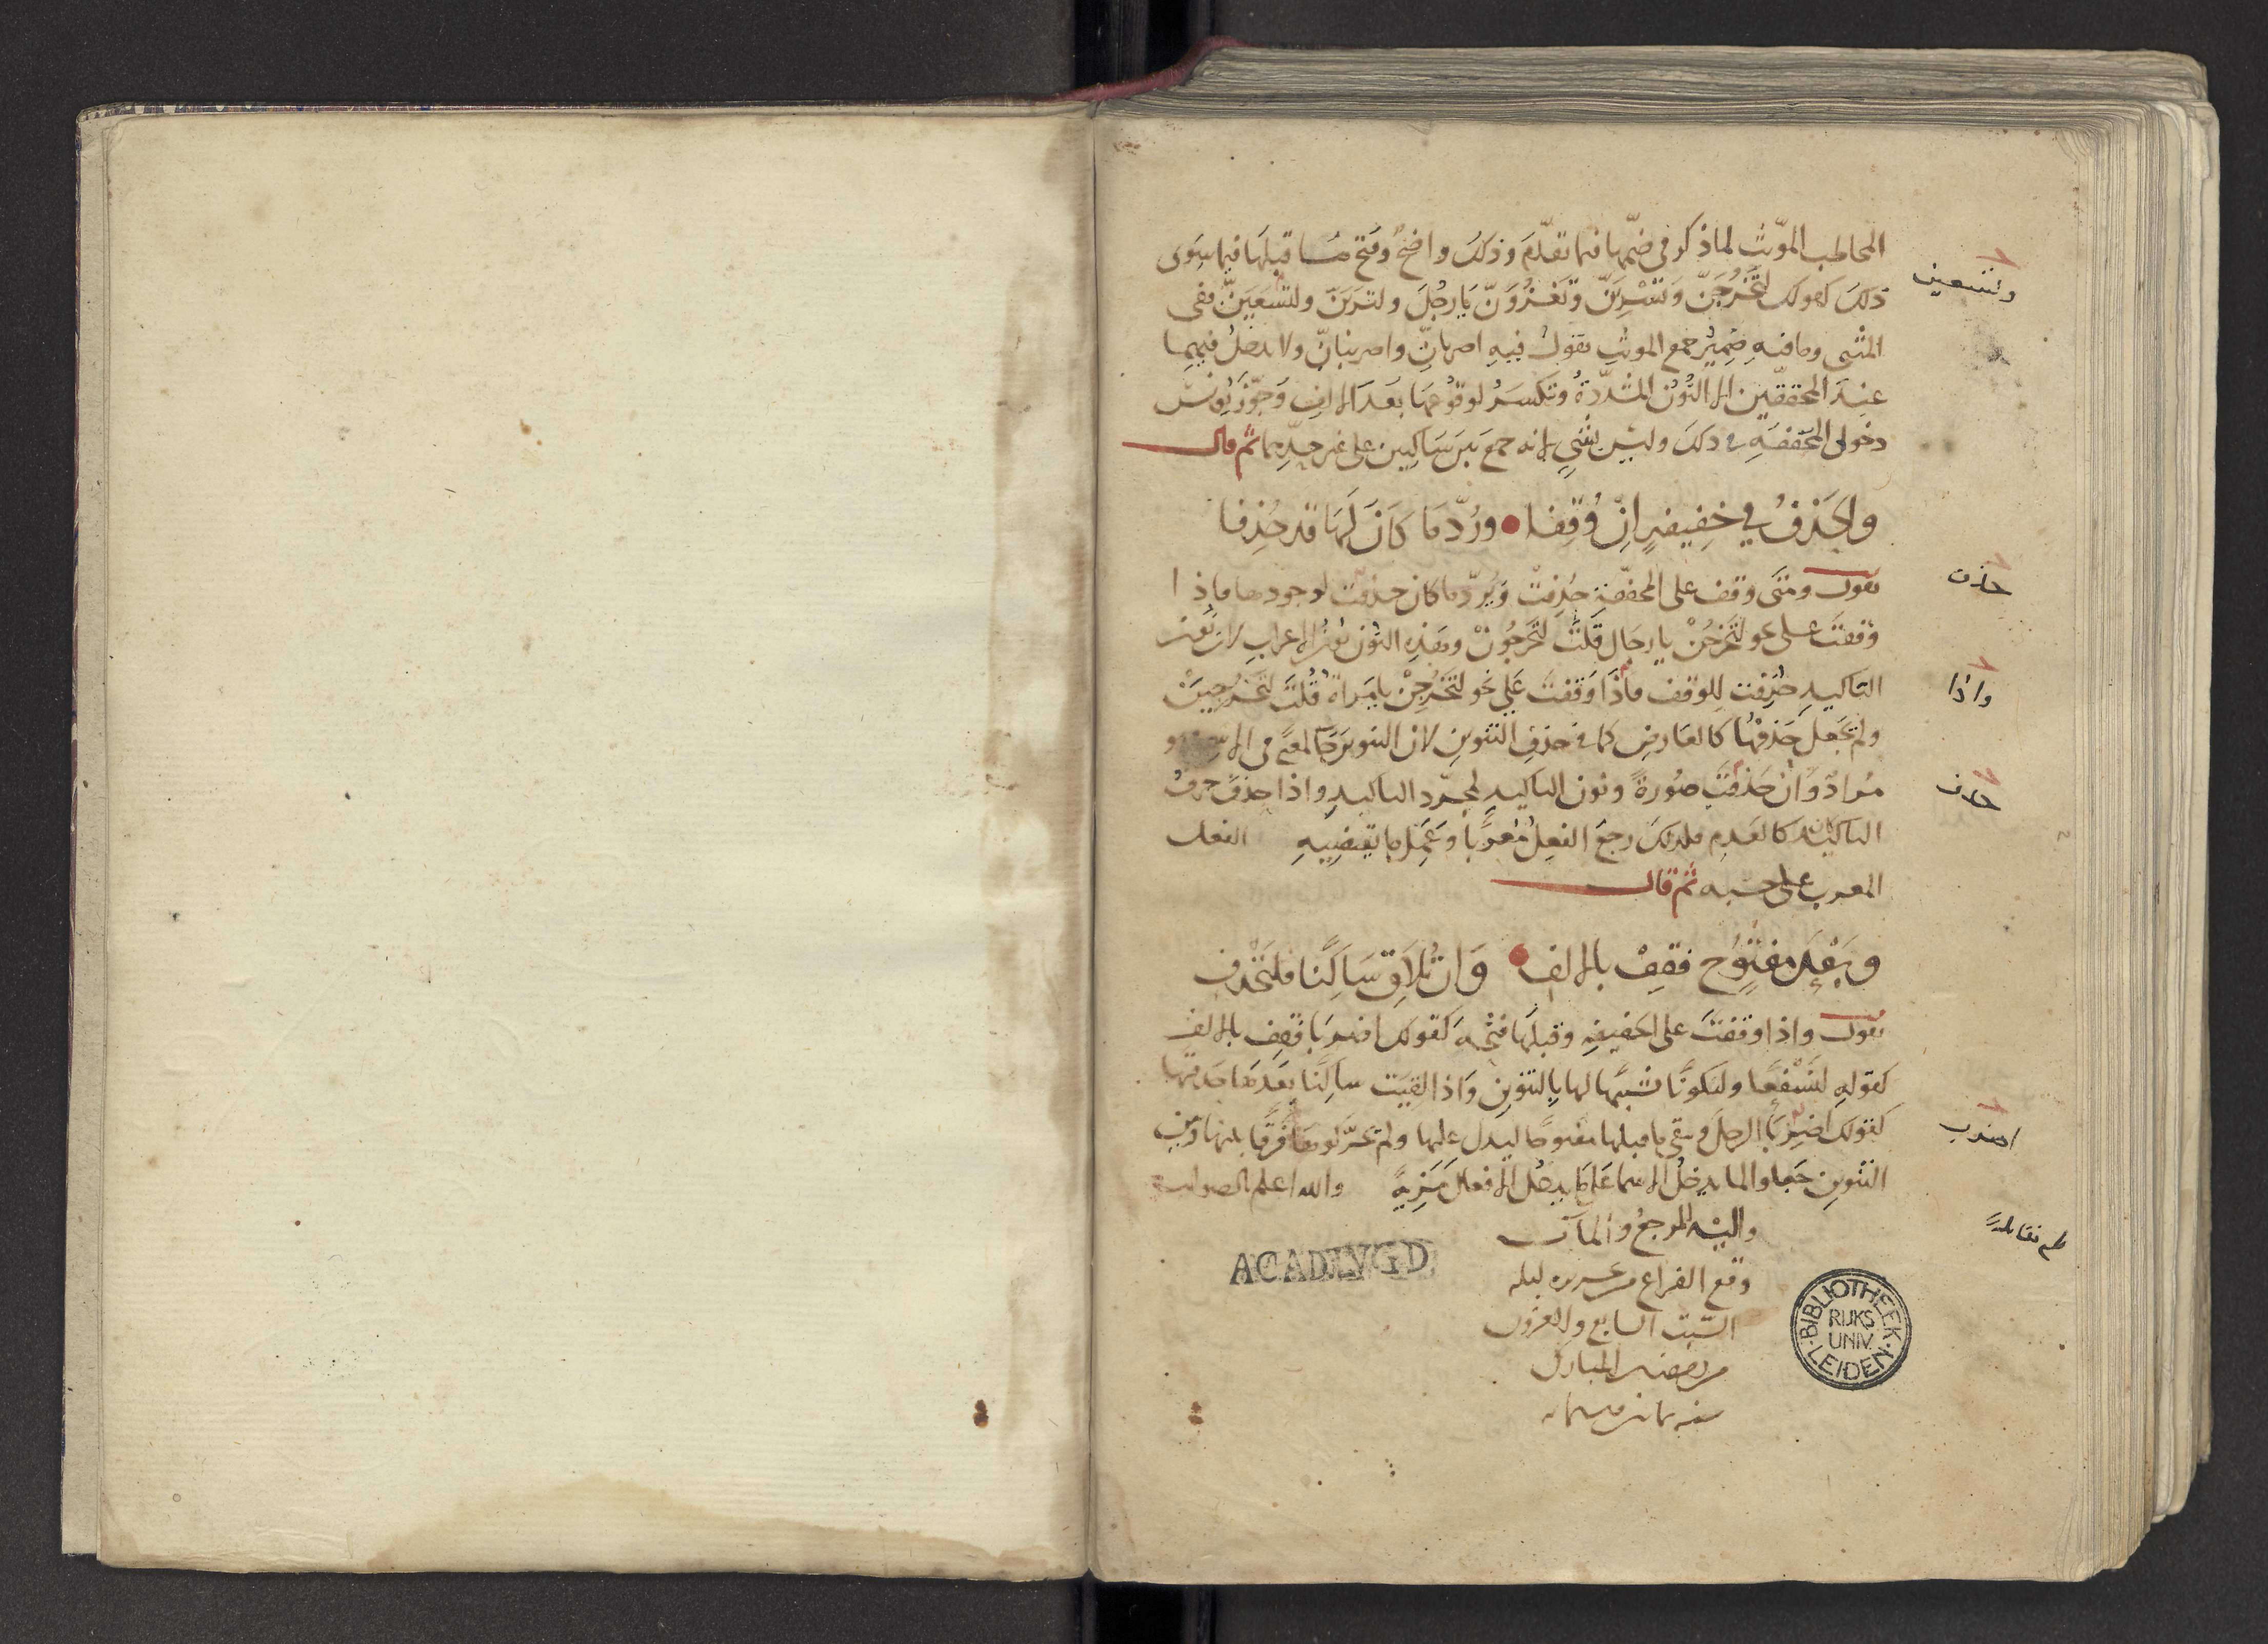 المخاطب المؤنث لما ذكر في ضمها فيما تقدّم وذلك واضح وفتح ما قبلها فيما سوى
ذلك كقولك لتخرجنّ وتشرينّ وتغزونّ يا رجل ولترينّ ولتسعينّ ففى
المثنى وما فيه ضمير جمع المونث تقول فيه اضربانّ واضربنانّ ولا يدخل فيهما
عند المحققين الا النون المشدّدة وتكسر لوقوعها بعد الالف وجوّز يونس
دخول المخففة في ذلك وليس بشيء لانه جمع بين ساكنين على غير حدّهما ثم قال
والحذف في خفيفة ان وقفا ورُدّ ما كان لها قد حذفا
تقول ومتى وقف على المخففة حذفت ويُردّ ما كان حذفت لوجودها فاذا
وقفت على نحو لتخرجُن يا رجال قلت لتخرجون وهذه النون نون الاعراب لان نون
التاكيد حذفت للوقف فاذا وقفت على نحو لتخرجِن يا مراة قلت لتخرجين
ولم تجعل حذفها كالعارض كما في حذف التنوين لان التنوين جا لمعنى في الاسم
مراد وان حذفت صورة ونون التاكيد لمجرد التاكيد واذا حذف حرف
التاكيد كان كالعدم فلذلك رجع الفعل معربا وعمل ما يقتضيه الفعل
المعرب على حسبه ثم قال
وبعد مفتوح فقف بالالف وان تلاق ساكنا فلتحذف
تقول واذا وقفت على الخفيفة وقبلها فتحة كقولك اضربا فقف بالالف
كقوله لنسفعا وليكونًا شبهها لها بالتنوين واذا لقيت ساكنا بعدها حذفتها
كقولك اضرب الرجل وبقي ما قبلها مفتوحا ليدل عليها ولم تحرّكوها فرقًا بينها وبين
التنوين جعلوا لما يدخل الاسما على ما يدخل الافعال مزيةً والله اعلم بالصواب
واليه المرجع والمآب
وقع الفراغ من تحريره ليله
السبت السابع والعشرون
من رمضان المبارك
وتسعين
حذف
واذا
حذف
اضرب
ACAD LVGD
BIBLIOTHEEK RIJKS UNIV. LEIDEN